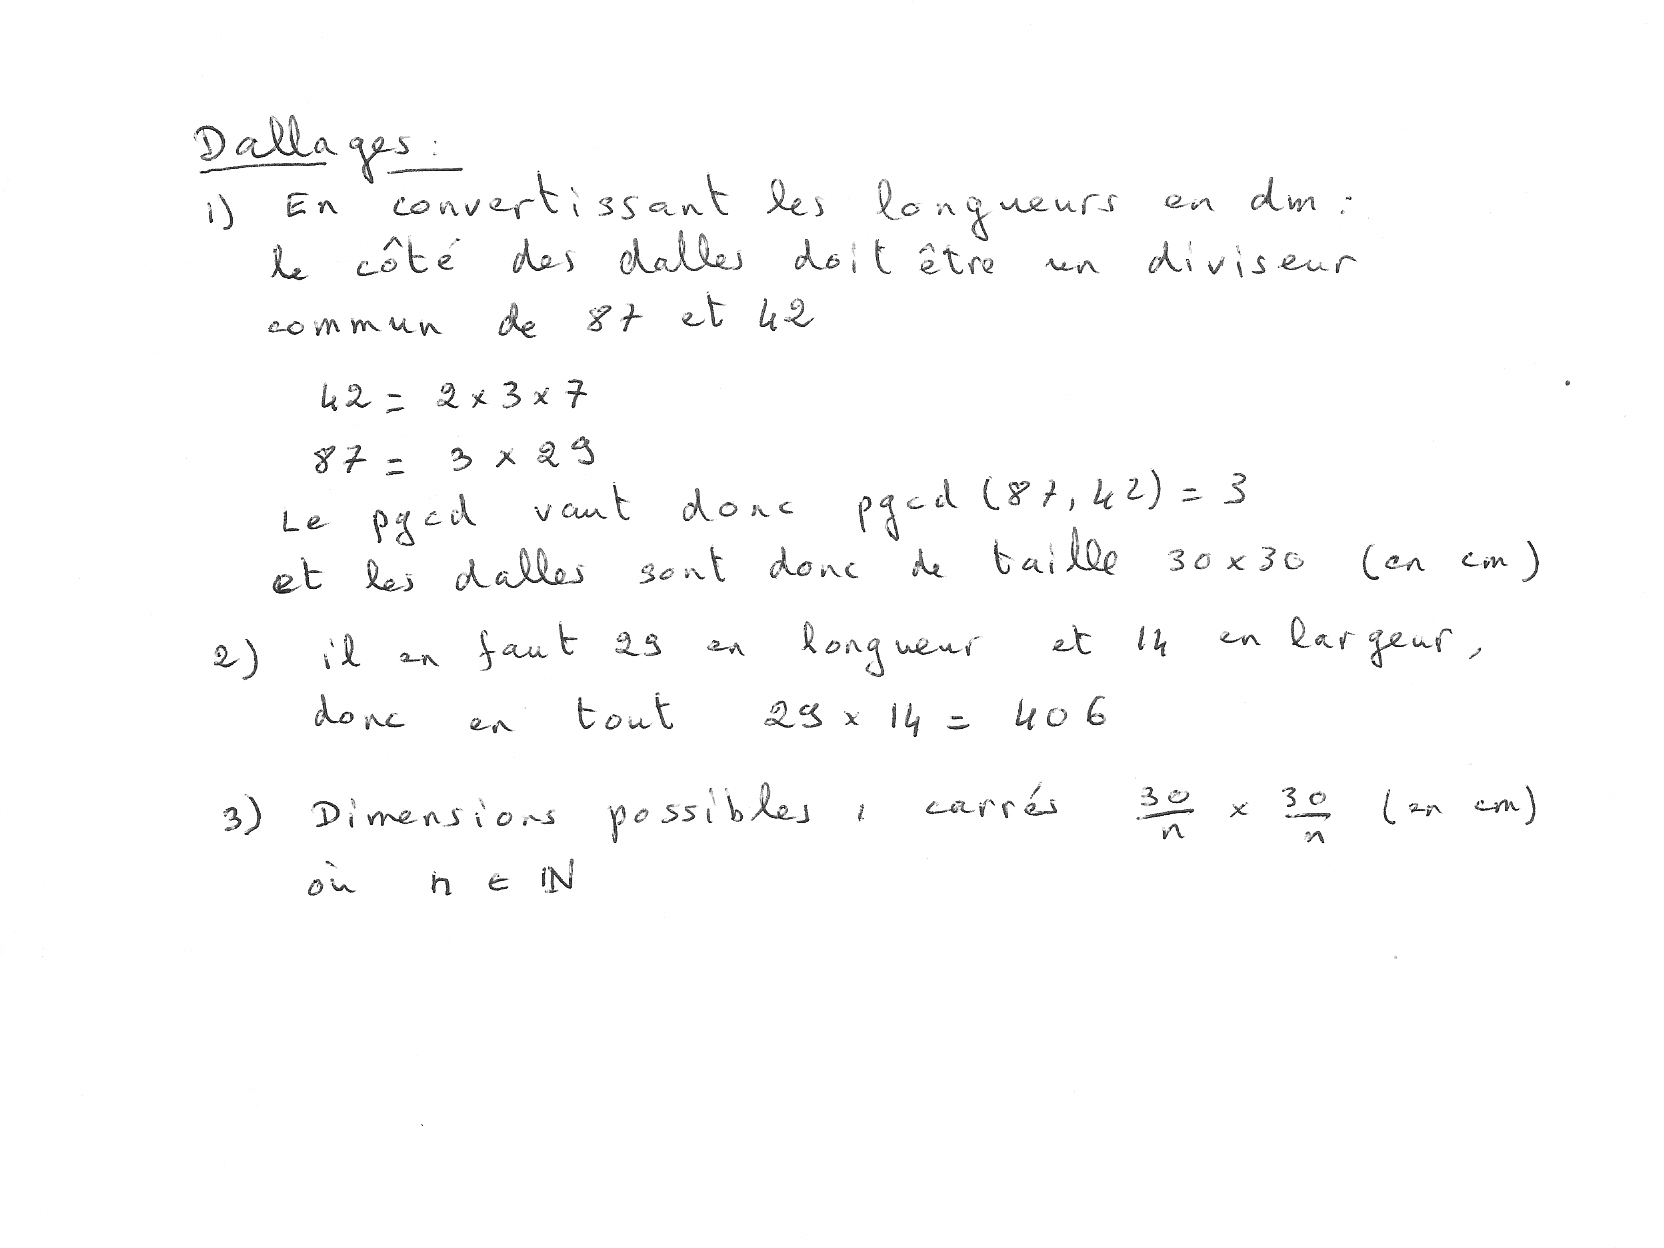 Dallages :
1) En convertissant les longueurs en dm :
le côté des dalles doit être un diviseur
commun de 87 et 42
42 = 2 × 3 × 7
87 = 3 × 29
Le pgcd vaut donc pgcd (87, 42) = 3
et les dalles sont donc de taille 30 × 30 (en cm)
2) il en faut 29 en longueur et 14 en largeur,
donc en tout 29 × 14 = 406
3) Dimensions possibles : carrés 30/n × 30/n (en cm)
où n ∈ ℕ